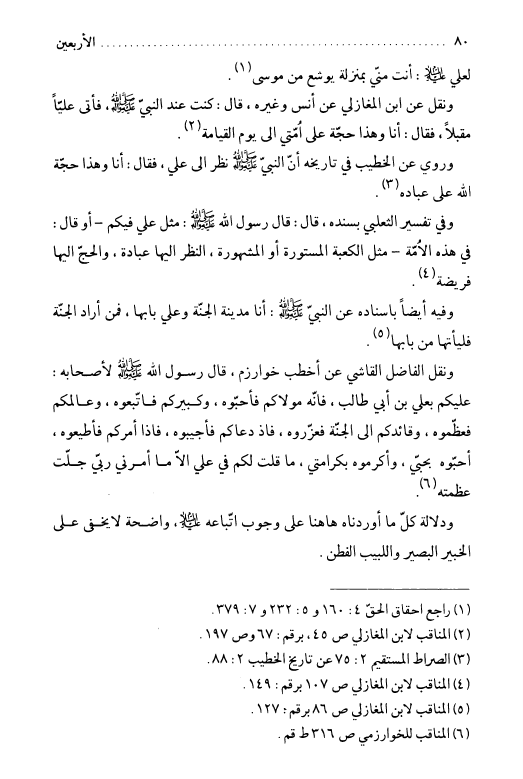 ٨٠ ........................................................... الأربعين
لعلي ﵇ : أنت منّي بمنزلة يوشع من موسى(١) .
ونقل عن ابن المغازلي عن أنس وغيره ، قال : كنت عند النبيّ ﷺ ، فأتى عليّاً
مقبلاً ، فقال : أنا وهذا حجّة على اُمّتي الى يوم القيامة(٢) .
وروي عن الخطيب في تاريخه أنّ النبيّ ﷺ نظر الى علي ، فقال : أنا وهذا حجّة
الله على عباده(٣) .
وفي تفسير الثعلبي بسنده ، قال : قال رسول الله ﷺ : مثل علي فيكم – أو قال :
في هذه الاُمّة – مثل الكعبة المستورة أو المشهورة ، النظر اليها عبادة ، والحجّ اليها
فريضة(٤) .
وفيه أيضاً باسناده عن النبيّ ﷺ : أنا مدينة الجنّة وعلي بابها ، فمن أراد الجنّة
فليأتها من بابها(٥) .
ونقل الفاضل القاشي عن أخطب خوارزم ، قال رسول الله ﷺ لأصحابه :
عليكم بعلي بن أبي طالب ، فانّه مولاكم فأحبّوه ، وكبيركم فاتّبعوه ، وعالمكم
فعظّموه ، وقائدكم الى الجنّة فعزّروه ، فاذ دعاكم فأجيبوه ، فاذا أمركم فأطيعوه ،
أحبّوه بحبّي ، وأكرموه بكرامتي ، ما قلت لكم في علي الاّ ما أمرني ربّي جلّت
عظمته(٦).
ودلالة كلّ ما أوردناه هاهنا على وجوب اتّباعه ﵇ ، واضحة لا يخفى على
الخبير البصير واللبيب الفطن .
(١) راجع احقاق الحقّ ٤ : ١٦٠ و ٥ : ٢٣٢ و ٧ : ٣٧٩ .
(٢) المناقب لابن المغازلي ص ٤٥ ، برقم : ٦٧ وص ١٩٧ .
(٣) الصراط المستقيم ٢ : ٧٥ عن تاريخ الخطيب ٢ : ٨٨ .
(٤) المناقب لابن المغازلي ص ١٠٧ برقم : ١٤٩ .
(٥) المناقب لابن المغازلي ص ٨٦ برقم : ١٢٧ .
(٦) المناقب للخوارزمي ص ٣١٦ ط قم .